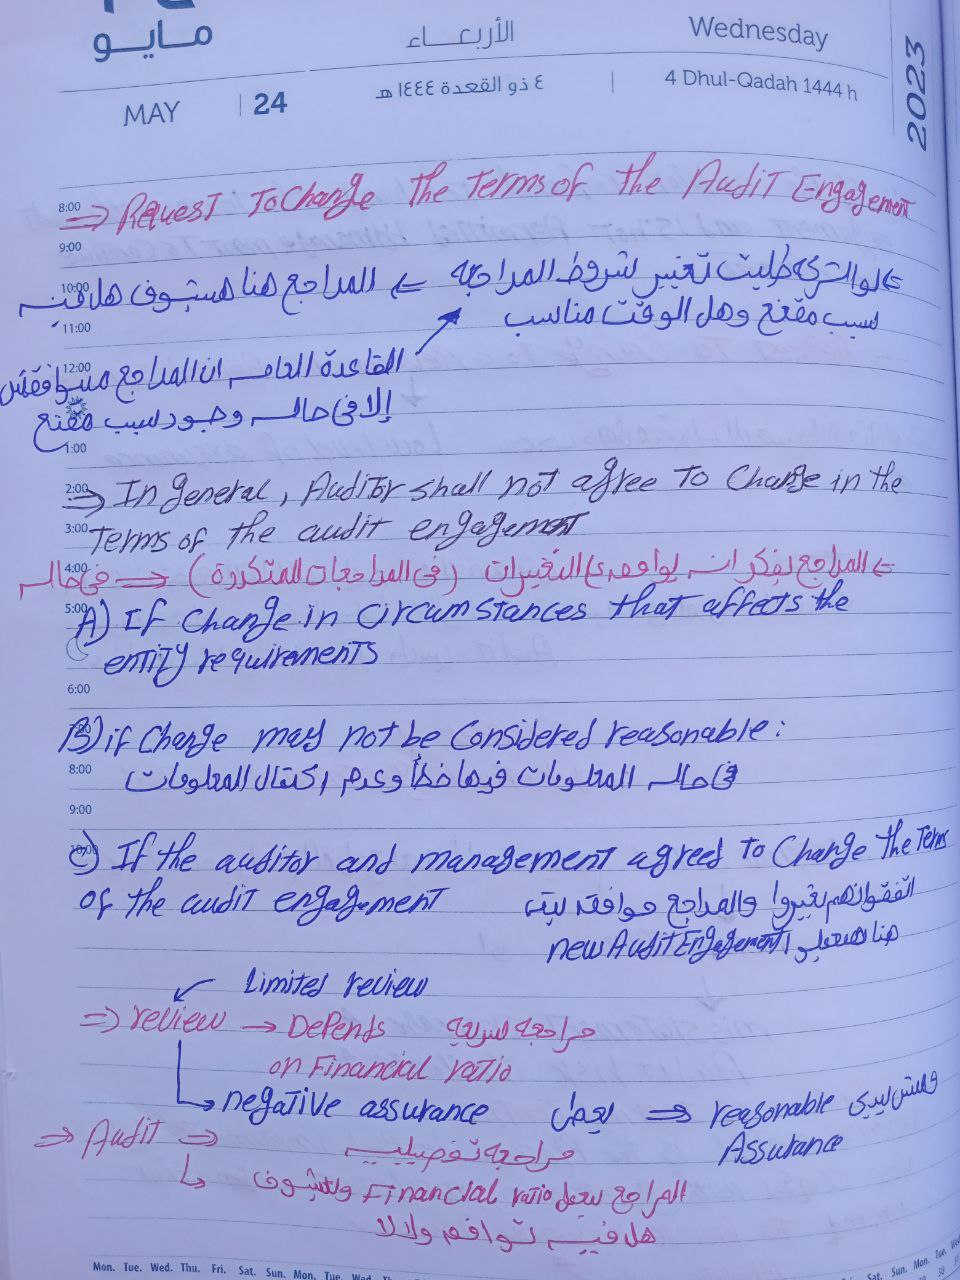 مايو
الأربعاء
Wednesday
MAY | 24
٤ ذو القعدة ١٤٤٤ هـ
4 Dhul-Qadah 1444 h
2023
8:00
⇒ Request To Change the Terms of the Audit Engagement
9:00
10:00
⇐ لو الشركة طلبت تغيير شروط المراجعة ⇐ المراجع هنا هيشوف هل فيه
11:00
سبب مقنع وهل الوقت مناسب
12:00
القاعدة العامه ان المراجع ميوافقش
إلا فى حاله وجود سبب مقنع
1:00
2:00
⇒ In general, Auditor shall not agree To Change in the
3:00
Terms of the audit engagement
4:00
⇐ المراجع يفكر انه يوافق التغيرات (فى المراجعات المتكررة) ⇐ فى حاله
5:00
A) If Change in circumstances that affects the
entity requirements
6:00
7:00
B) if Change may not be Considered reasonable :
8:00
فى حاله المعلومات فيها خطأ وعدم اكتمال المعلومات
9:00
10:00
C) If the auditor and management agreed To Change the Terms
of the audit engagement
اتفقوا انهم يغيروا والمراجع موافق
هنا هيعملوا new Audit Engagement
Limited review
⇒ review → Depends مراجعه سريعه
on Financial ratio
negative assurance يعطى ⇒ reasonable ومش بيدى
Assurance
⇒ Audit ⇒ مراجعه تفصيليه
المراجع بيعمل Financial ratio وبيشوف
هل فيه توافق ولا لا
Mon. Tue. Wed. Thu. Fri. Sat. Sun. Mon. Tue. Wed.
Sat. Sun. Mon. Tue.